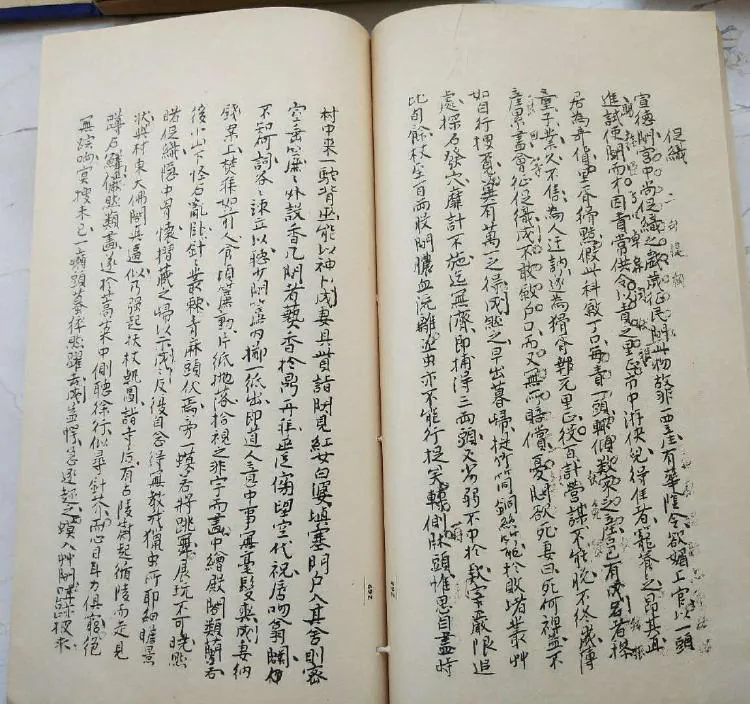 促織
宣德間宮中尚促織之戲歲征民間此物故非西產有華陰令欲媚上官以一頭
進試使鬥而才因責常供令以責之里正市中游俠兒得佳者籠養之昂其直
居為奇貨里胥猾黠假此科斂丁口每責一頭輒傾數家之產邑有成名者操
童子業久不售為人迂訥遂為猾胥報充里正役百計營謀不能脫不終歲薄
產累盡會征促織成不敢斂戶口而又無所賠償憂悶欲死妻曰死何裨益不
如自行搜覓冀有萬一之得成然之早出暮歸提竹筒銅絲籠於敗堵叢艸
處探石發穴靡計不施迄無濟即捕得三兩頭又劣弱不中於款宰嚴限追
比旬餘杖至百兩股間膿血流離並虫亦不能行捉矣轉側床頭惟思自盡時
村中來一駝背巫能以神卜成妻具貲詣問見紅女白婆填塞門戶入其舍則密
室垂簾簾外設香几問者爇香於鼎再拜巫從傍望空代祝唇吻翕闢
不知何詞各各竦立以聽少間簾內擲一紙出即道人意中事無毫髮爽成妻納
錢案上焚拜如前人食頃簾動片紙拋落拾視之非字而畫中繪殿閣類蘭若
後小山下怪石亂臥針針叢棘青麻頭伏焉旁一蟆若將跳舞展玩不可曉然
睹促織隱中胸懷摺藏之歸以示成成反復自念得無教我獵虫所耶細瞻景
狀與村東大佛閣真逼似乃強起扶杖執圖詣寺后有古陵蔚起循陵而走見
蹲石鱗鱗儼然類畫遂於蒿萊中側聽徐行似尋針芥而心目耳力俱窮絕
無踪响冥搜未已一癩頭蟇猝然躍去成益愕急逐趁之蟇入艸間躡跡披求